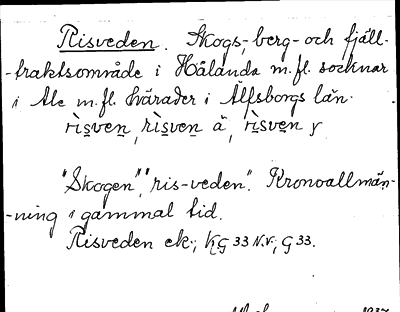 Risveden. Skogs-, berg- och fjäll-
-traktsområde i Hålanda m.fl. socknar
i Ale m.fl. härader i Älfsborgs län.
rìsven, rìsven å, rìsven y
"Skogen", "ris-veden". Kronoallmän-
-ning i gammal tid.
Risveden ek.; KG 33 N.V.; G 33.